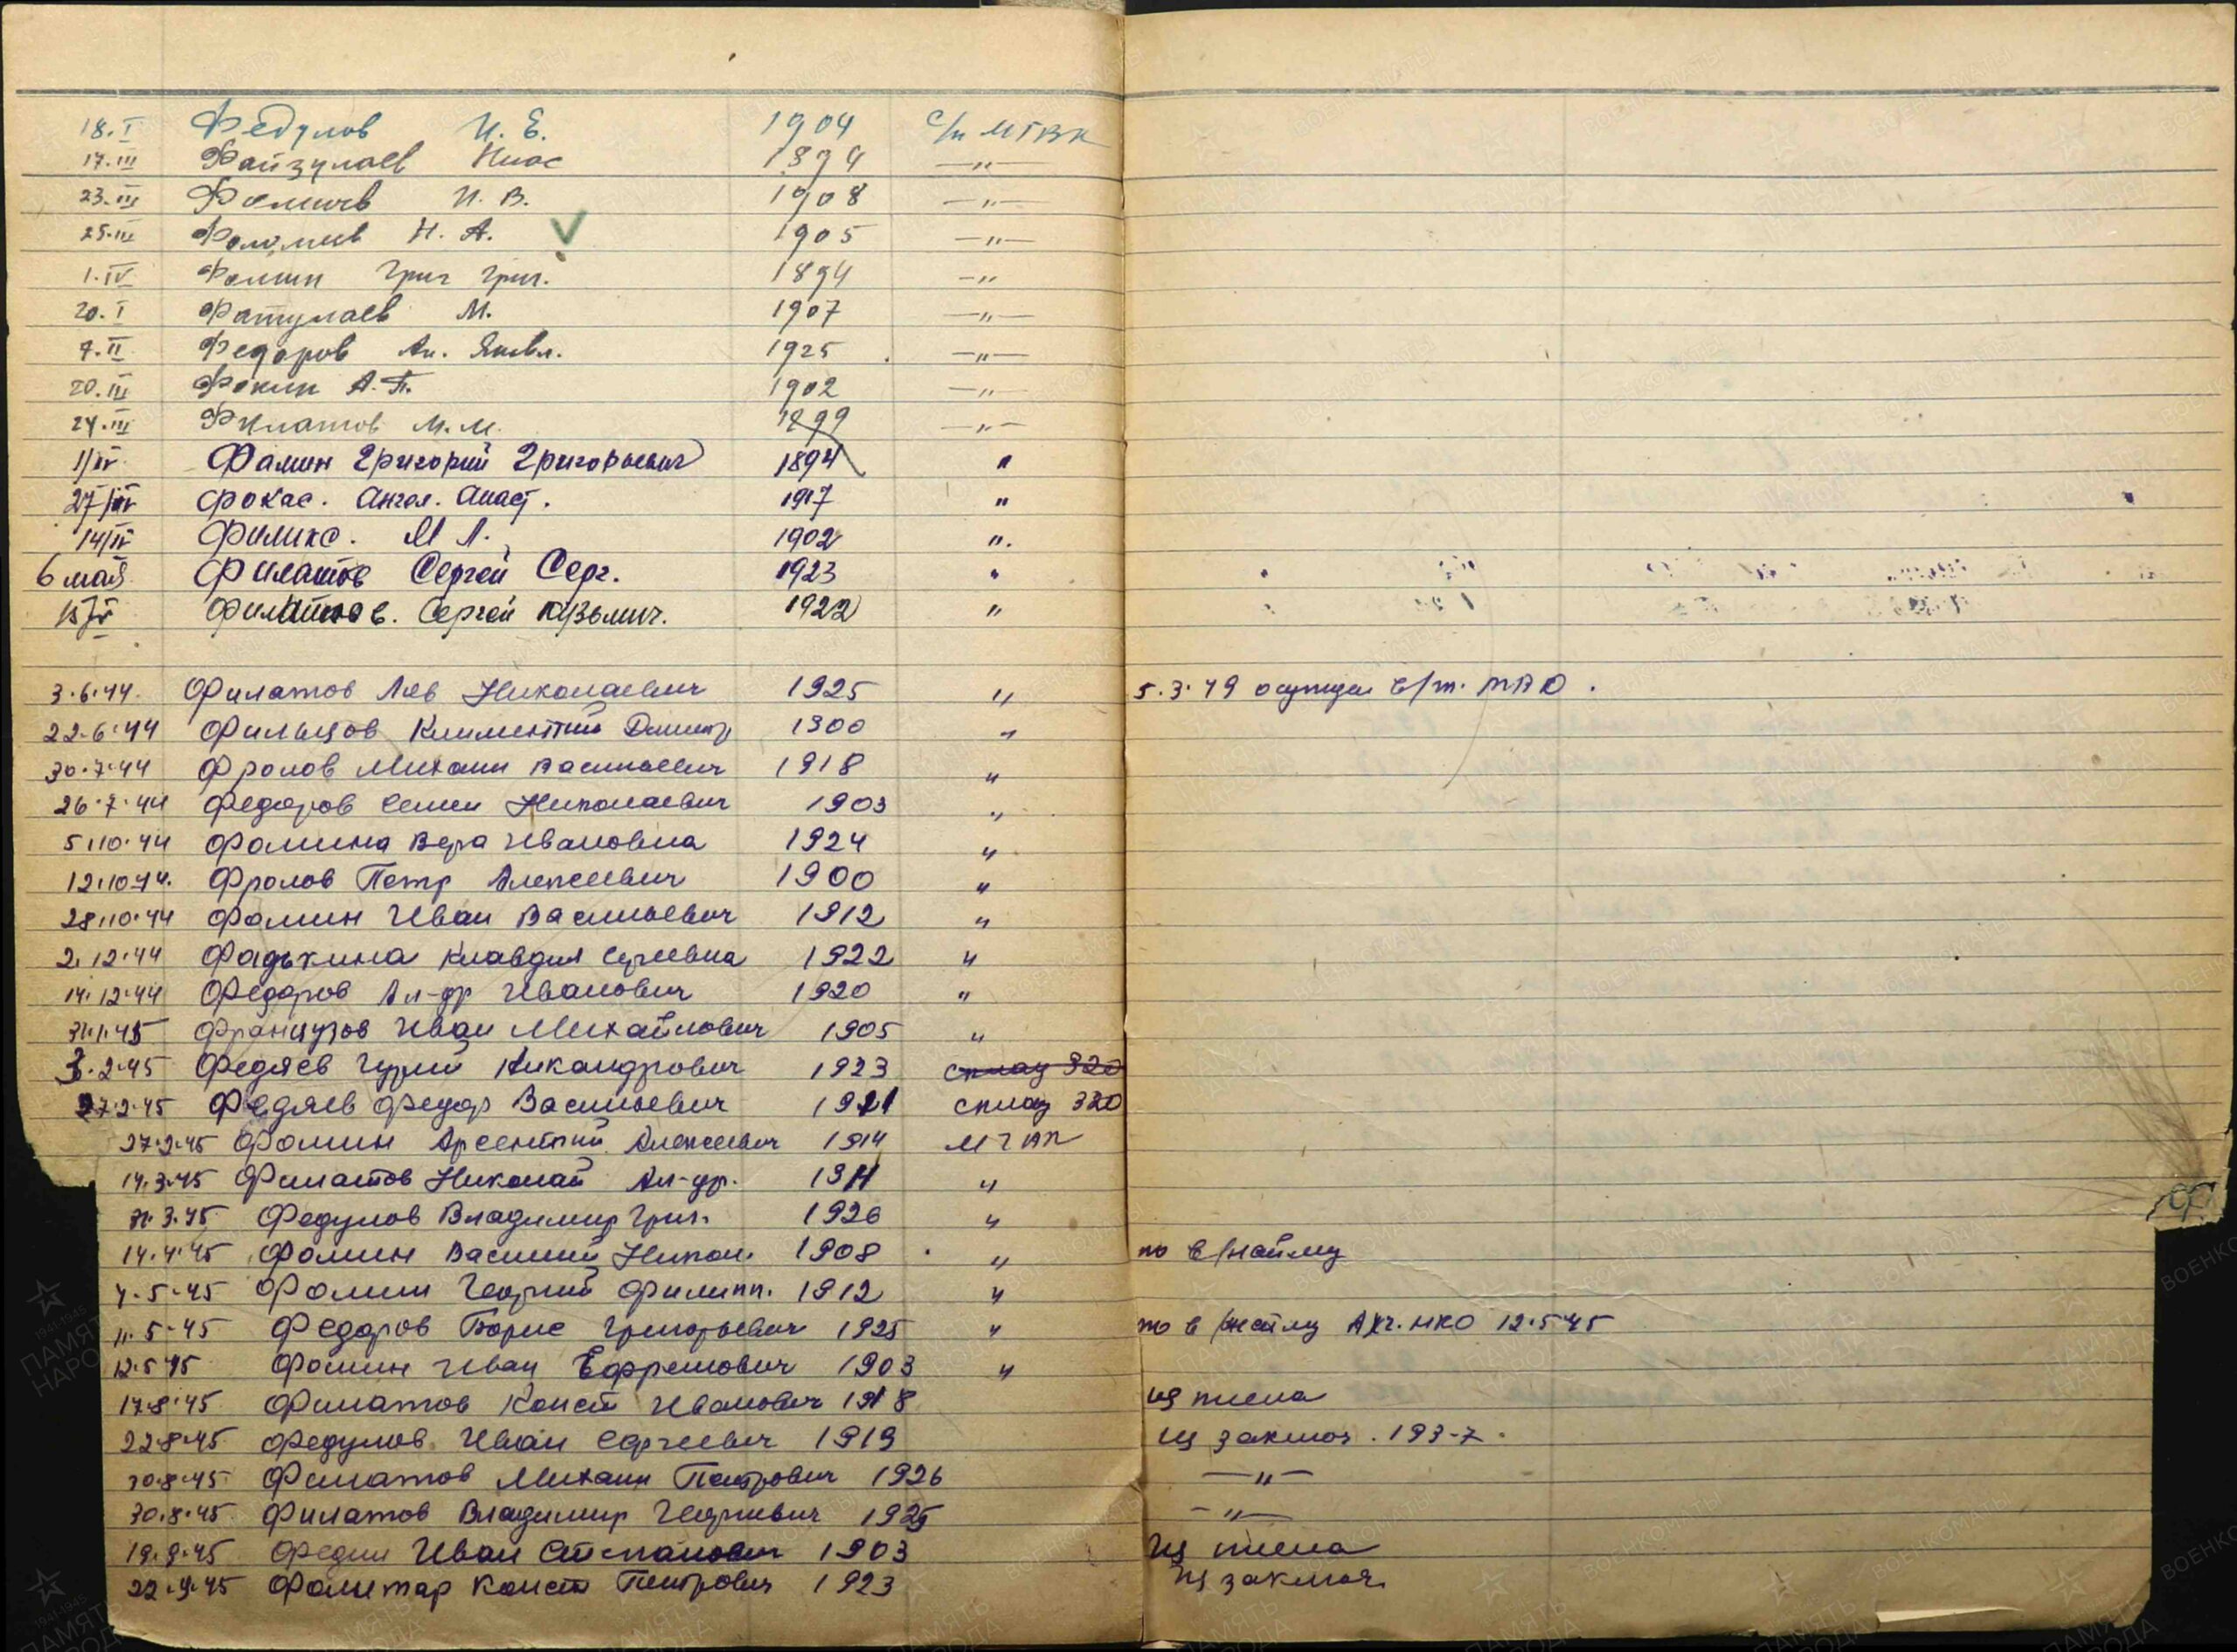 18.I Федулов И. Е. 1904 с/п МГВК
17.III Файзулаев Ниас 1894 —"—
23.III Фомичев И. В. 1908 —"—
25.III Н. А. V 1905 —"—
1.IV Фомин Григ Григ. 1894 —"
20.I Фатулаев М. 1907 —"—
7.II Федоров Ан. Яковл. 1925 —"—
20.III Фокин А. П. 1902 —"
24.III Филатов М. М. 1899 —"—
1/IV Фамин Григорий Григорьевич 1894 "
27/IV Фокас. Ангел. Анаст. 1917 "
14/IV Филикс. М Л. 1902 ".
6 мая Филатов Сергей Серг. 1923 "
15/V Филатов. Сергей Кузьмич. 1922 "
3.6.44 Филатов Лев Николаевич 1925 " 5.3.49 осужден в/т. МВО.
22.6.44 Фильцов Климентий Дмитр 1900 "
30.7.44 Фролов Михаил Васильевич 1918 "
26.7.44 Федоров Семен Николаевич 1903 "
5.10.44 Фомина Вера Ивановна 1924 "
12.10.44. Фролов Петр Алексеевич 1900 "
28.10.44 Фомин Иван Васильевич 1912 "
2.12.44 Фадькина Клавдия Сергеевна 1922 "
14.12.44 Федоров Ал-др Иванович 1920 "
31.1.45 Французов Иван Михайлович 1905 "
3.2.45 Федяев Гурий Никандрович 1923 сплав 320
27.2.45 Федяев Федор Васильевич 1921 сплав 320
27.2.45 Фомин Арсентий Алексеевич 1914 МГВК
14.3.45 Филатов Николай Ал-др. 1911 "
31.3.45 Федулов Владимир Григ. 1926 "
14.4.45 Фомин Василий Никол. 1908 " по в/найму
4.5.45 Фомин Георгий Филипп. 1912 "
11.5.45 Федоров Борис Григорьевич 1925 " по в/найму НКО 12.5.45
12.5.45 Фомин Иван Ефремович 1903 "
17.8.45 Филатов Конст Иванович 1918 из плена
22.8.45 Федулов Иван Сергеевич 1919 из заключ. 193-7.
30.8.45 Филатов Михаил Петрович 1926 —"—
30.8.45 Филатов Владимир Георгиевич 1925 —"—
19.9.45 Федин Иван Степанович 1903 Из плена
22.9.45 Конст Петрович 1923 Из заключ.